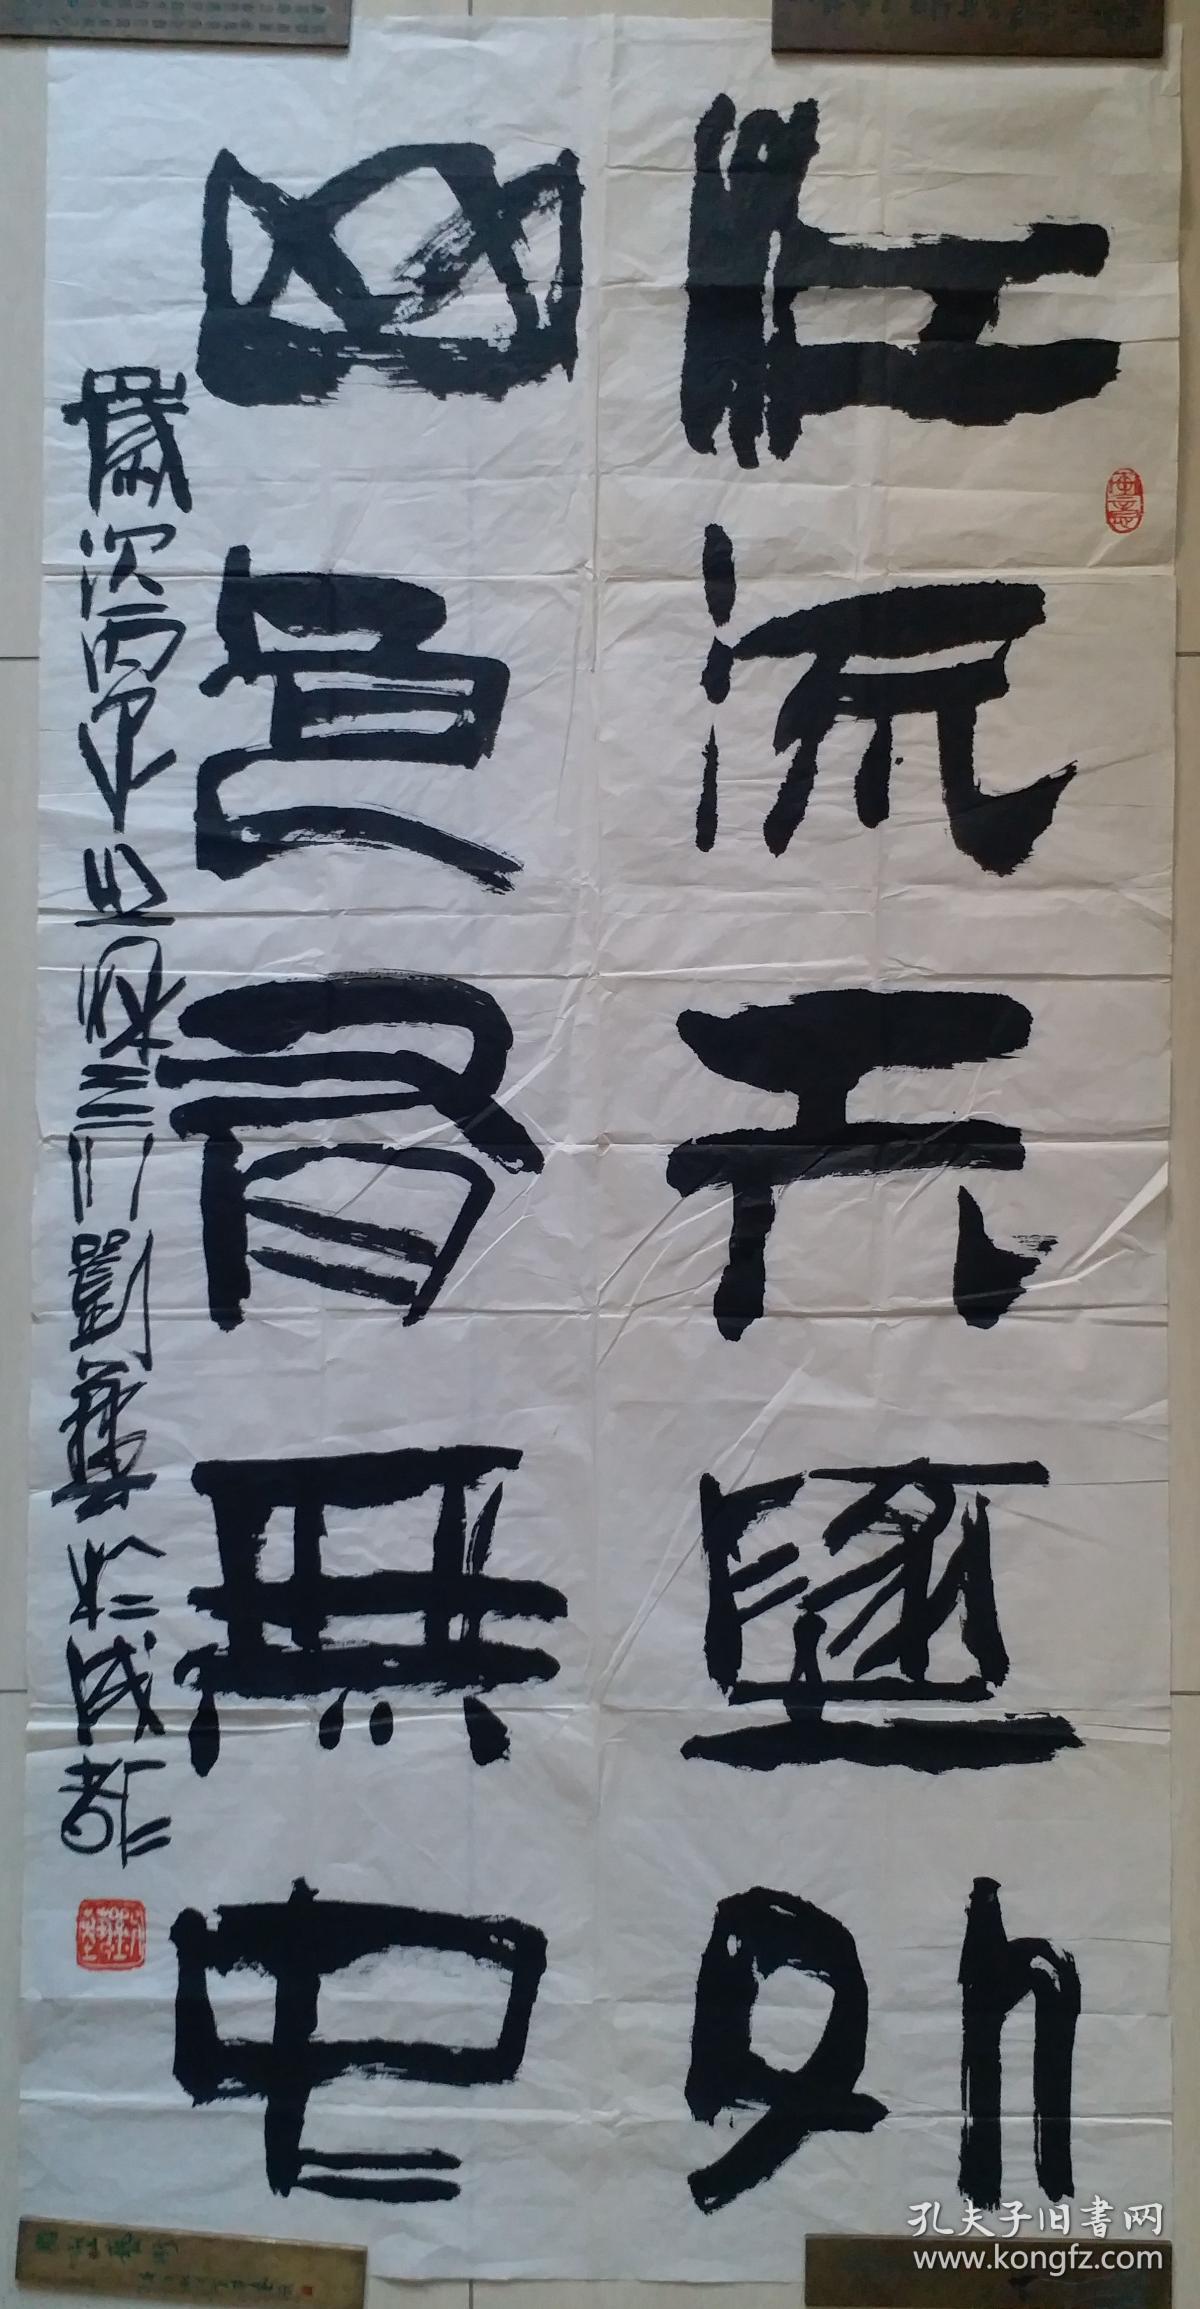 江流天墬外
山色有無中
歲次丙申之秋三川劉於成都
孔夫子旧書网
www.kongfz.com